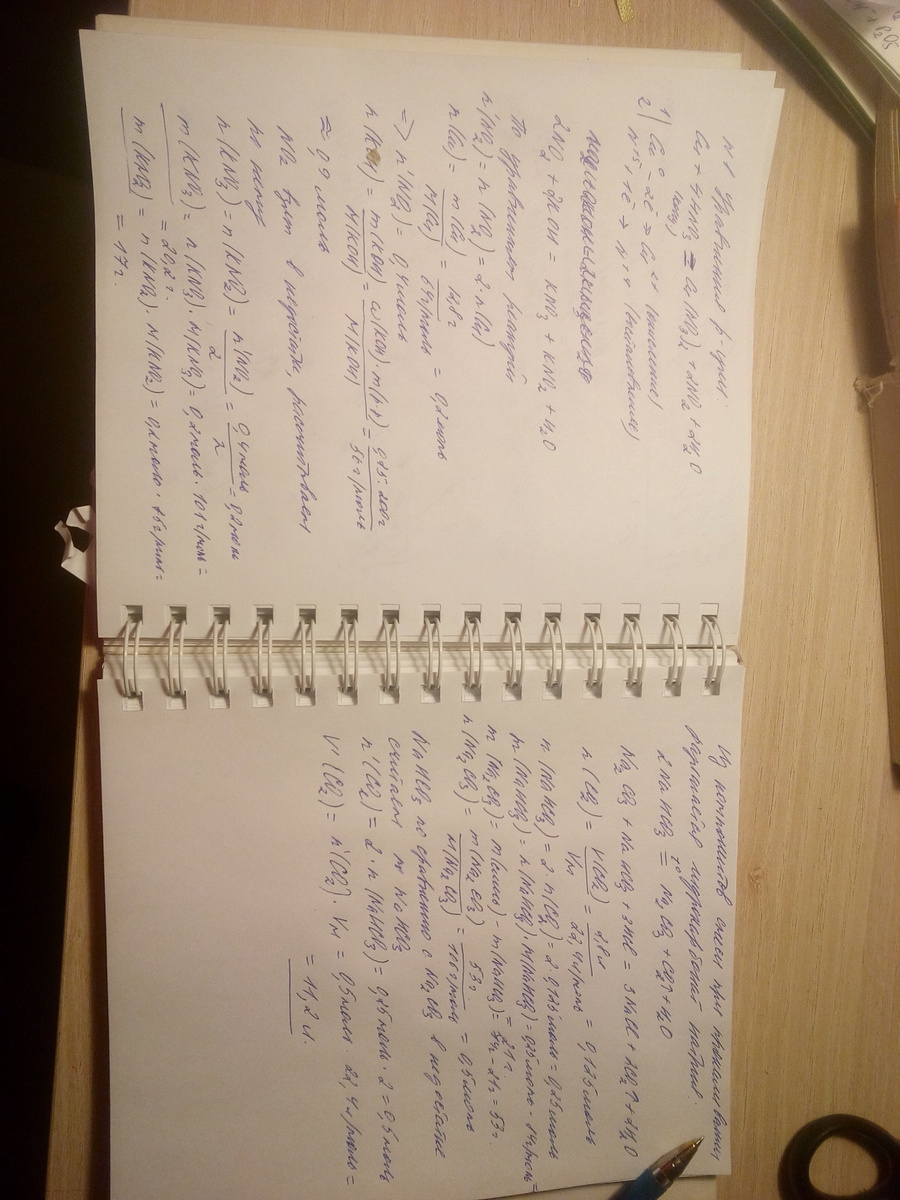 N1 Уравнения р-ций:
Cu + 4HNO3 = Cu(NO3)2 + 2NO2 + 2H2O
(конц)
1| Cu0 - 2ē → Cu2+ (окисление)
2| N+5 + 1ē → N+4 (восстановление)
2NO2 + 2KOH = KNO3 + KNO2 + H2O
По уравнениям реакций
n'(NO2) = n(NO2) = 2·n(Cu)
n(Cu) = m(Cu) / M(Cu) = 12,8г / 64г/моль = 0,2 моль
=> n'(NO2) = 0,4 моль
n(KOH) = m(KOH) / M(KOH) = ω(KOH)·m(р-р) / M(KOH) = 0,25·200г / 56г/моль
≈ 0,9 моль
NO2 взят в недостатке, рассчитываем
по нему
n(KNO3) = n(KNO2) = n'(NO2) / 2 = 0,4 моль / 2 = 0,2 моль
m(KNO3) = n(KNO3)·M(KNO3) = 0,2 моль·101 г/моль =
= 20,2 г.
m(KNO2) = n(KNO2)·M(KNO2) = 0,2 моль·85 г/моль =
= 17 г.
Из компонентов смеси при прокаливании,
разлагается гидрокарбонат натрия.
2NaHCO3 =t°= Na2CO3 + CO2↑ + H2O
Na2CO3 + NaHCO3 + 3HCl = 3NaCl + 2CO2↑ + 2H2O
n(CO2) = V(CO2) / VM = 2,8л / 22,4 л/моль = 0,125 моль
n(NaHCO3) = 2·n(CO2) = 2·0,125 моль = 0,25 моль
m(NaHCO3) = n(NaHCO3)·M(NaHCO3) = 0,25 моль·84 г/моль =
= 21 г.
m(Na2CO3) = m(смеси) - m(NaHCO3) = 74г - 21г = 53г.
n(Na2CO3) = m(Na2CO3) / M(Na2CO3) = 53г / 106 г/моль = 0,5 моль
NaHCO3 по сравнению с Na2CO3 в недостатке
считаем по NaHCO3
n'(CO2) = 2·n(NaHCO3) = 0,25 моль·2 = 0,5 моль
V'(CO2) = n'(CO2)·VM = 0,5 моль·22,4 л/моль =
= 11,2 л.